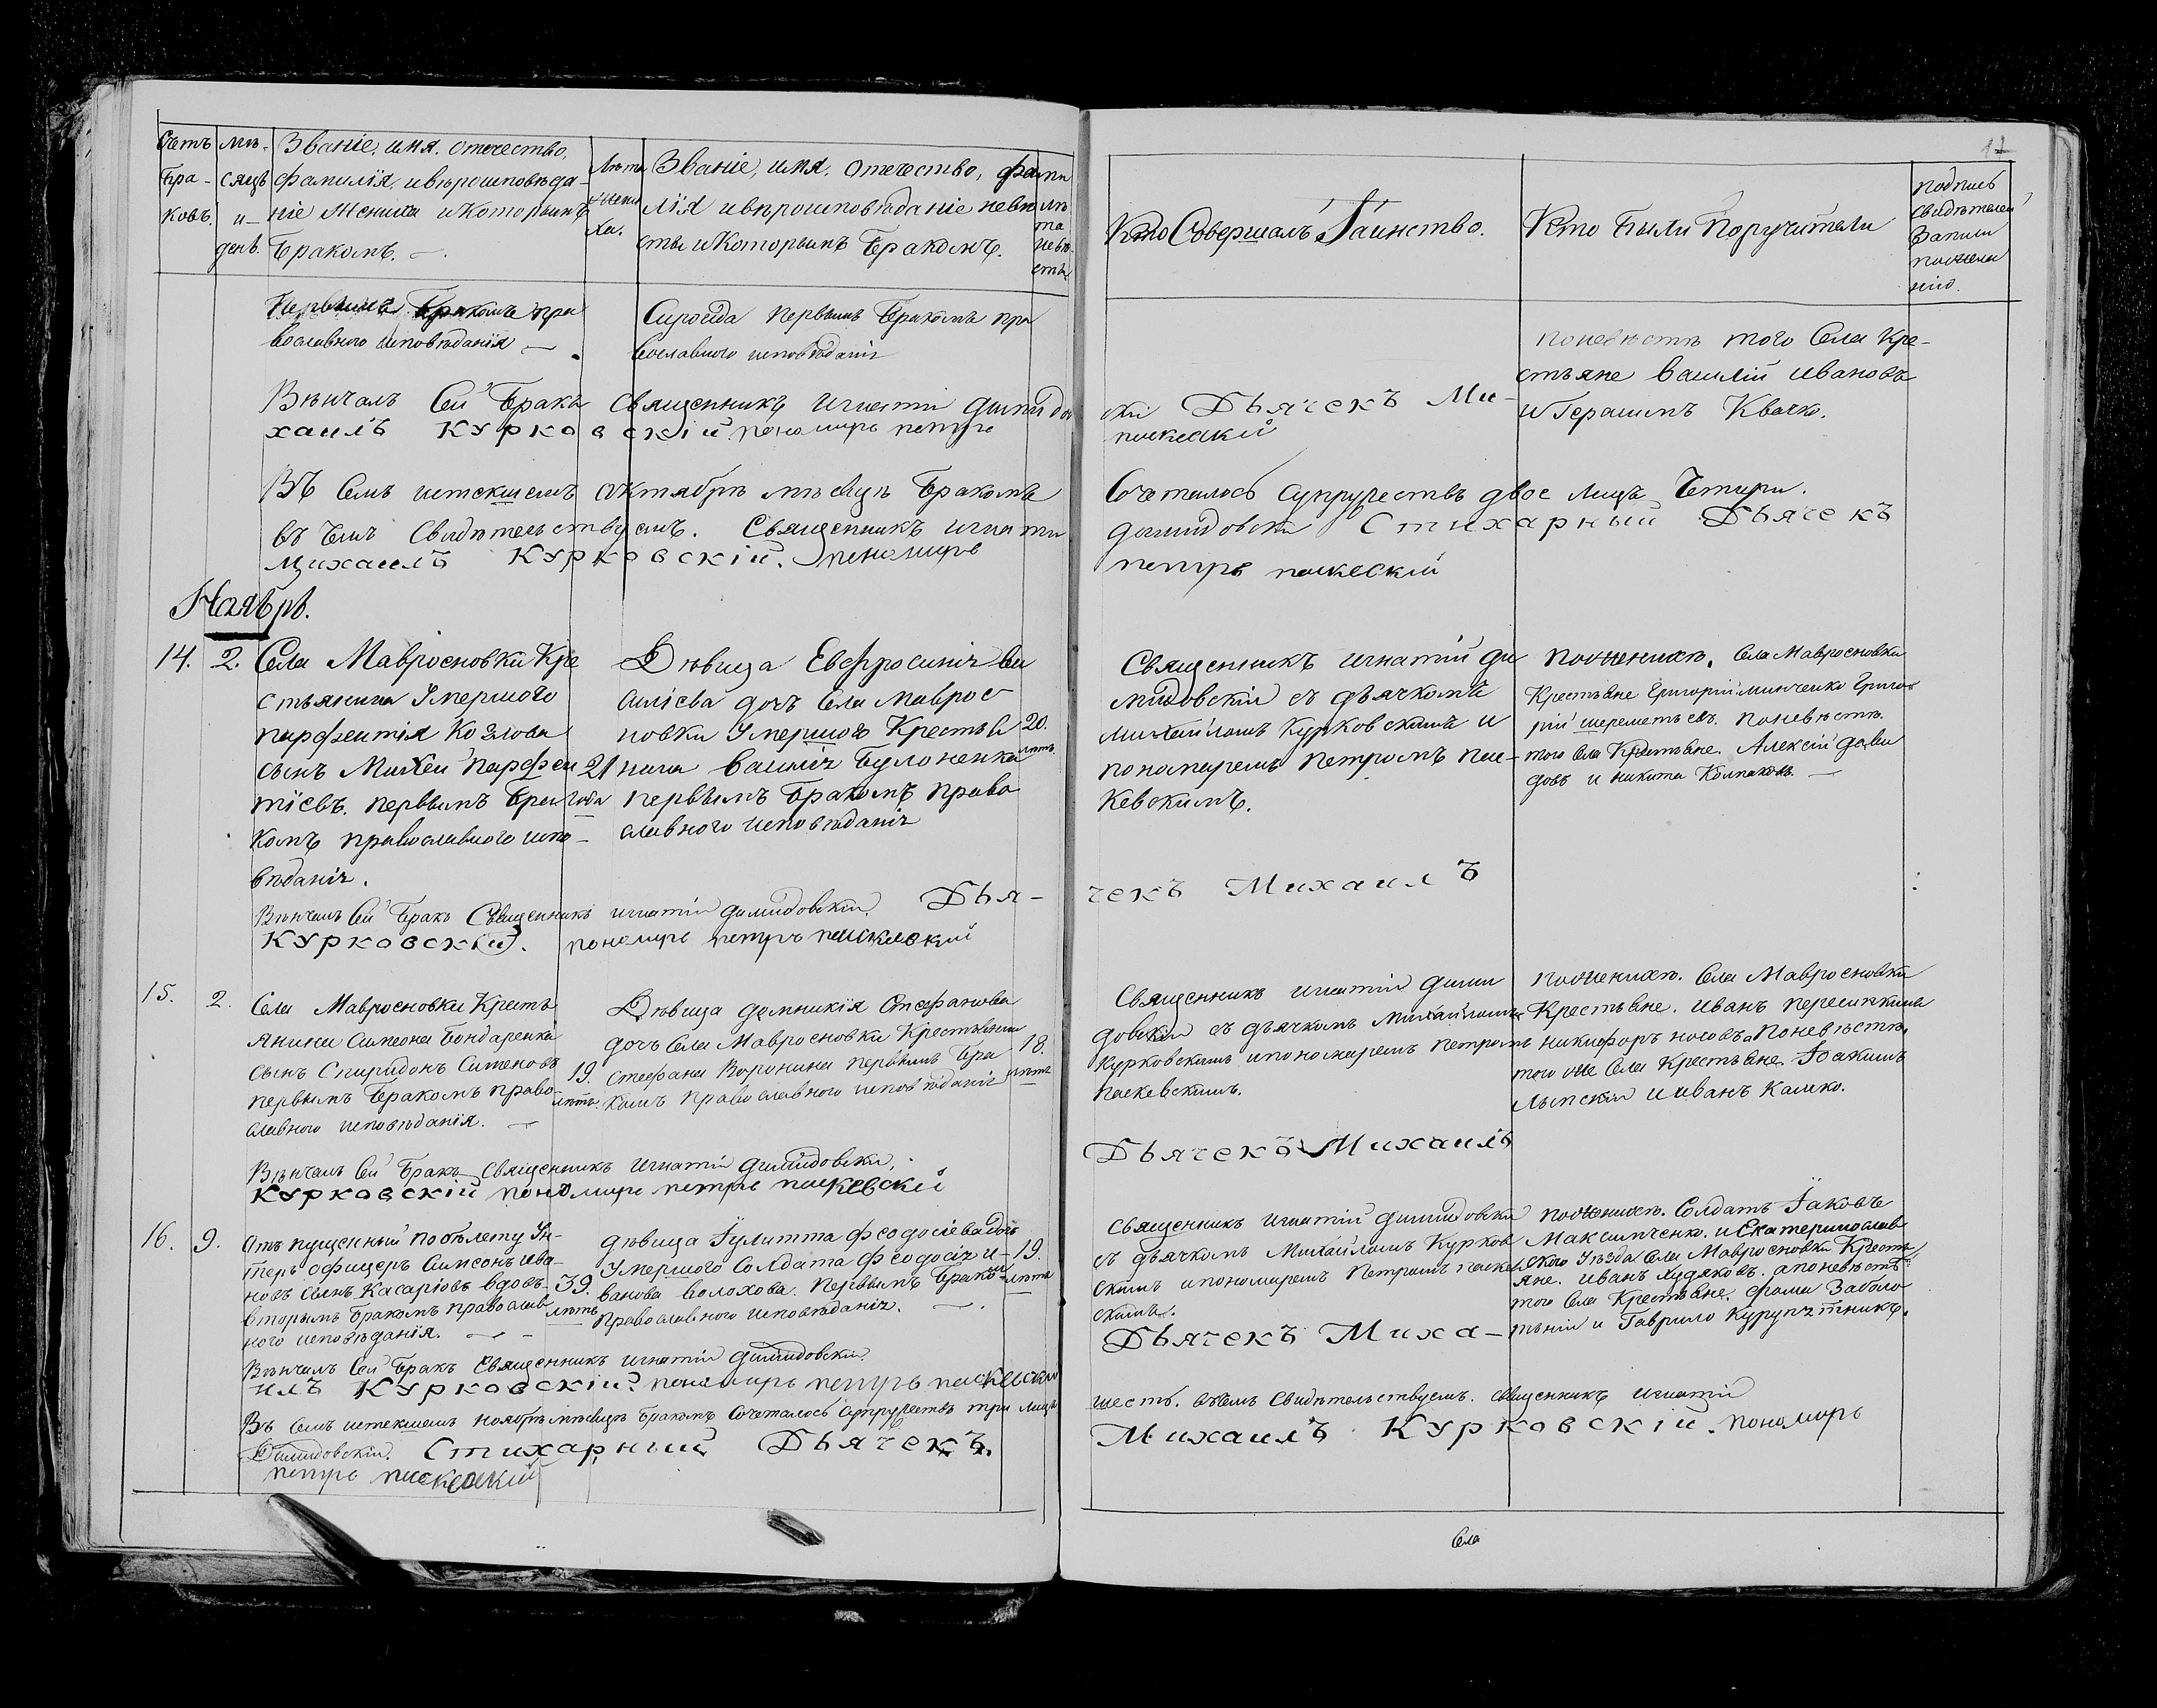 Счетъ
бра-
ковъ.
мѣ-
сяцъ
и-
день.
Званіе, имя, отечество,
фамилія, ивѣроисповѣда-
ніе Жениха икоторымъ
бракомъ.
Лѣта
жени
ха.
Званіе, имя, отечество, фами
лія ивѣроисповѣданіе невѣ
сты икоторымъ бракомъ.
лѣ
та
невѣ
сты
Кто Совершалъ Таинство.
Кто были Поручители
подпись
свидѣтелей
Записи
пожела
нію.
Первымъ Бракомъ пра
вославного исповѣданія
Сирота первымъ Бракомъ пра
вославного исповѣданія
поневѣстѣ того Села Кре-
стьяне Василій Ивановъ
и Герасимъ Квачко.
Вѣнчалъ Сей Бракъ Священникъ Игнатій Димидов
скій Дьячекъ Ми-
хаилъ Курковскій пономарь петръ
паскевскій
Въ Семъ истекшемъ октябрѣ мѣсяцѣ Бракомъ
Сочеталось супружествъ двое лицъ Четыри.
въ Чемъ Свидѣтельствуемъ. Священникъ Игнатій
Димидовскій Стихарный Дьячекъ
Михаилъ Курковскій. пономарь
петръ паскевскій
Наябрь.
14.
2.
Села Мавроеновки Кре
стьянина Умершого
парфентія Козлова
сынъ Михей парфен
тіевъ. первымъ Бра
комъ православного испо-
вѣданія.
21
года
Дѣвица Евфросинія Ва
силіева дочь Села Маврое
новки Умершого Крестья
нина Василія Булоненка
первымъ Бракомъ право
славного исповѣданія
20.
лѣтъ
Священникъ Игнатій Ди
мидовскій съ дьячкомъ
Михайломъ Курковскимъ и
пономаремъ Петромъ пас-
кевскимъ.
пожениху. Села Мавроеновки
Крестьяне Григорій минченко Григо
рій шереметьевъ. поневѣстѣ
того Села Крестьяне. Алексій дави
довъ и никита Колпаковъ.
Вѣнчалъ Сей Бракъ Священникъ Игнатій Димидовскій. Дья-
чекъ Михаилъ
Курковскій. пономарь петръ паскевскій
15.
2.
Села Мавроеновки Кресть
янина Симеона Бондаренка
сынъ Спиридонъ Сименовъ
первымъ Бракомъ право
славного исповѣданія.
19.
лѣтъ.
Дѣвица домникія Стефанова
дочь Села Мавроеновки Крестьянина
стефана Воронина первымъ Бра
комъ православного исповѣданія
18.
лѣтъ
Священникъ Игнатій Дими
довскій съ дьячкомъ Михайломъ
Курковскимъ ипономаремъ Петромъ
Паскевскимъ.
пожениху. Села Мавроеновки
Крестьяне. Иванъ
никифоръ носовъ. Поневѣстѣ
того же Села Крестьяне Іоакимъ
Лыпскій и иванъ Калко.
Вѣнчалъ Сей Бракъ Священникъ Игнатій Димидовскій,
Дьячекъ Михаилъ
Курковскій пономарь петръ паскевскій
16.
9.
Отъ пущенный побѣлету Ун-
теръ офицеръ Симсонъ Ива-
новъ сынъ Касаріовъ вдовъ.
вторымъ Бракомъ православ
ного исповѣданія.
39.
лѣтъ
дѣвица Іулитта феодосіева дочь
Умершого Солдата Феодосія и-
ванова Волохова. Первымъ Бракомъ
Православного исповѣданія.
19.
лѣтъ
Священникъ Игнатій Димидовскій
съ дьячкомъ Михайломъ Курков
скимъ ипономаремъ Петромъ паскев
скимъ.
пожениху. Солдатъ Іаковъ
Максимченко. и Екатеринослав
ского Уѣзда Села Мавроеновки Кресть
яне. Иванъ Худяковъ. а поневѣстѣ
того Села Крестьяне. фома Заболо
тьній и Гаврило Курупятникъ.
Вѣнчалъ Сей Бракъ Священникъ Игнатій Димидовскій.
Дьячекъ Миха-
илъ Курковскій. пономарь петръ паскевскій
Въ Семъ истекшемъ ноябрѣ мѣсяцѣ Бракомъ Сочеталось Супружествъ три лицъ
шесть. въ чемъ Свидѣтельствуемъ. священникъ Игнатій
Димидовскій. Стихарный Дьячекъ.
Михаилъ Курковскій. пономарь
петръ паскевскій
Села